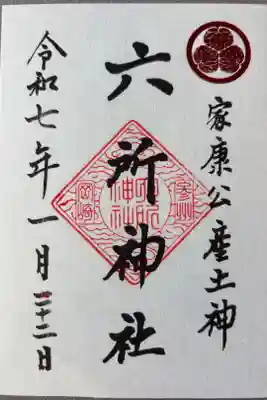 家康公産土神
六所神社
參州
岡崎
令和七年一月二十二日